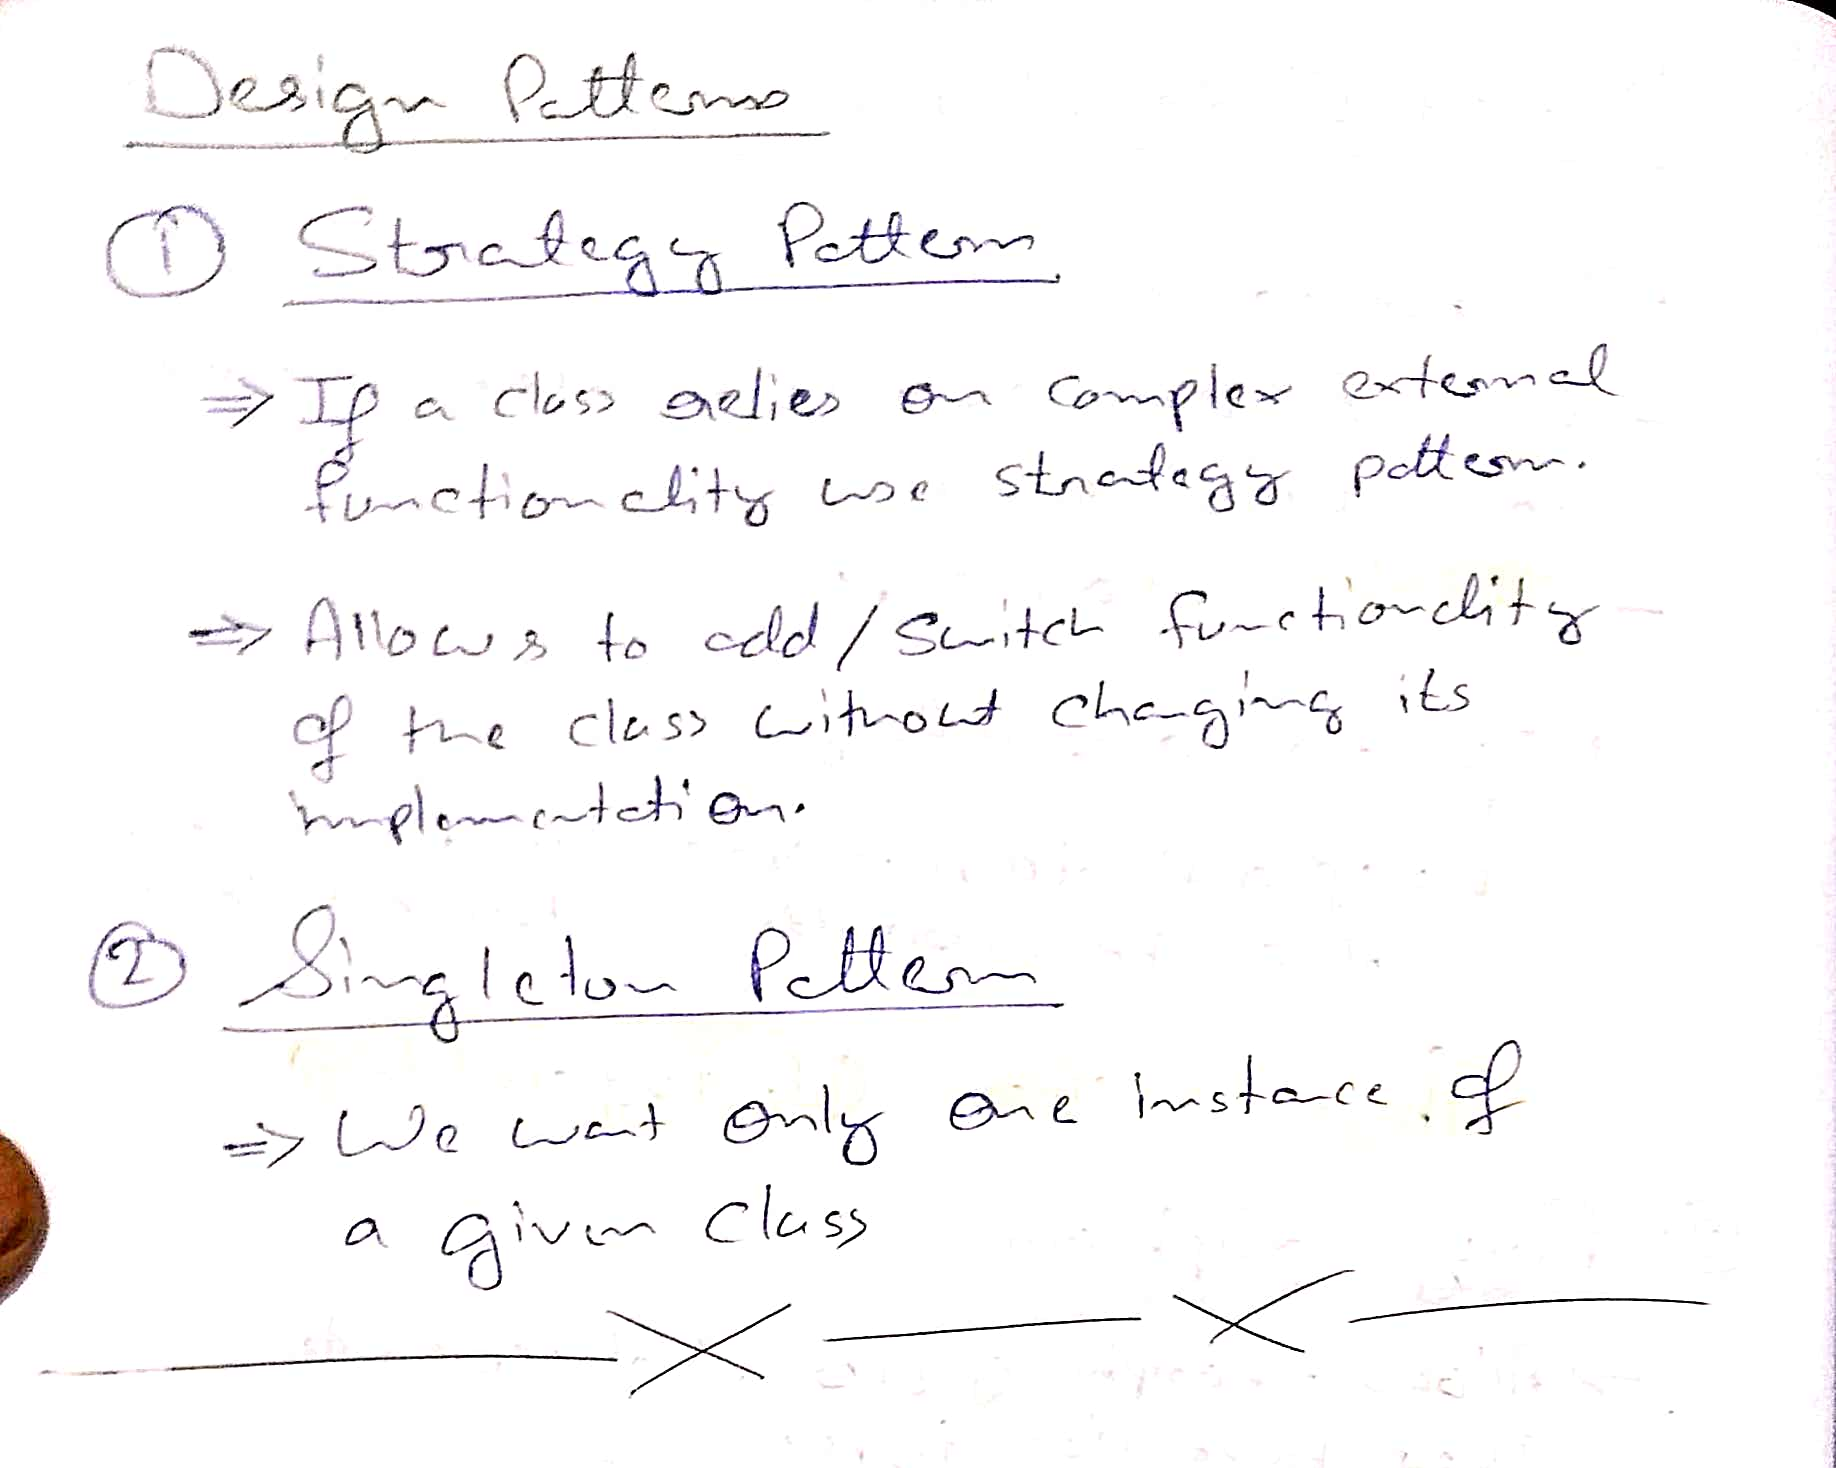 Design Patterns
① Strategy Pattern
⇒ If a class relies on complex external
functionality use strategy pattern.
⇒ Allows to add / switch functionality
of the class without changing its
implementation.
② Singleton Pattern
⇒ We want only one instance of
a given class